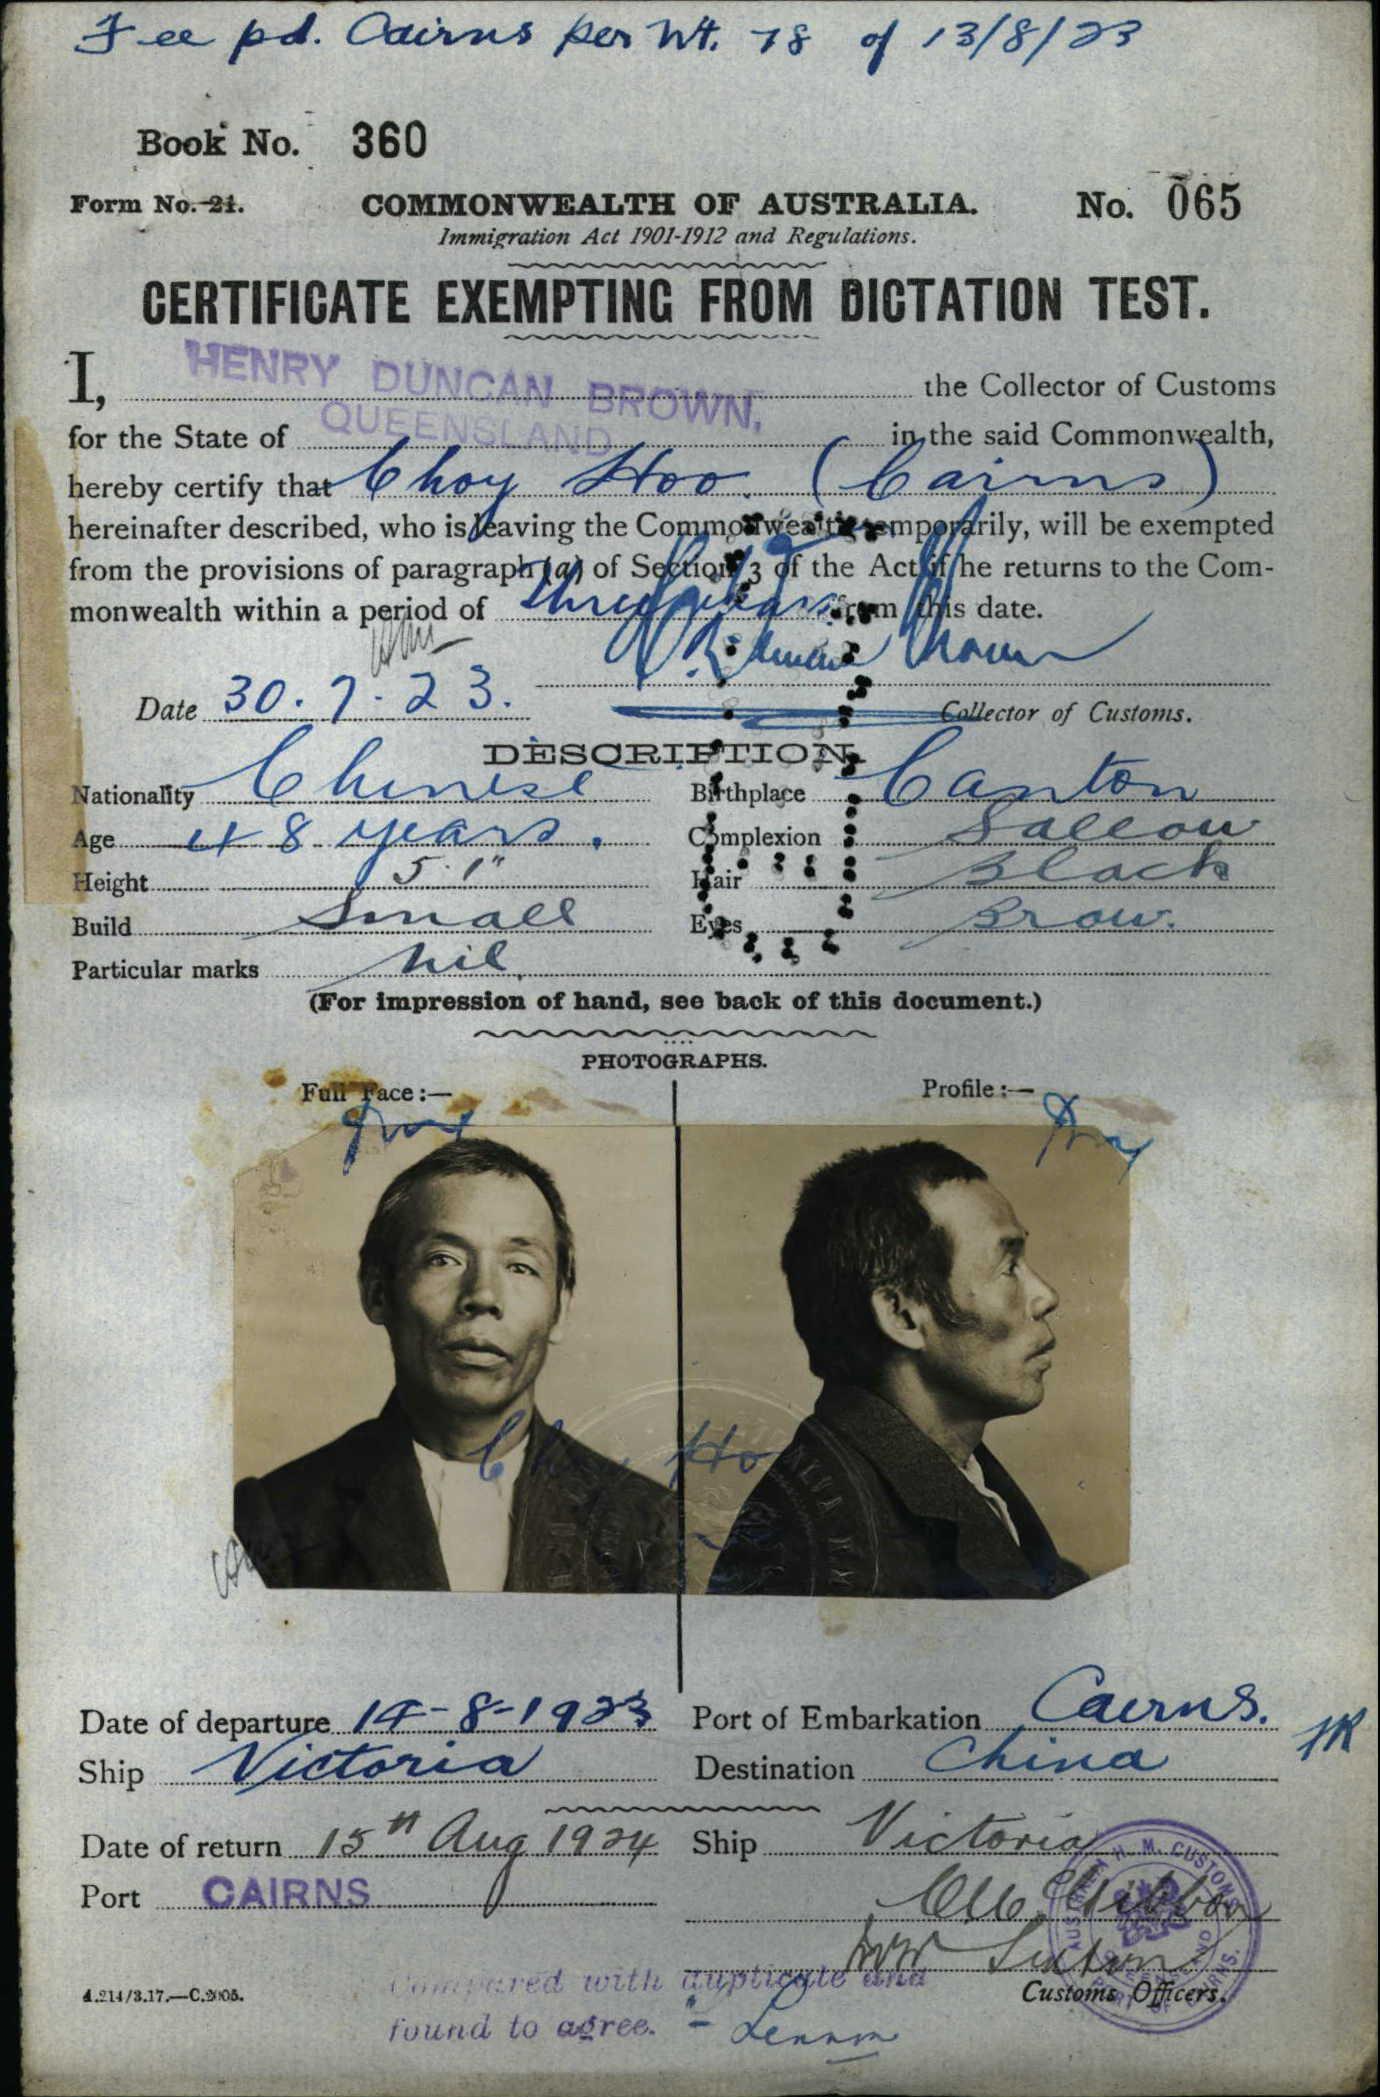 Fee pd. Cairns per Nt. 78 of 13/8/23
Book No. 360
Form No. 21. COMMONWEALTH OF AUSTRALIA. No. 065
Immigration Act 1901-1912 and Regulations.
CERTIFICATE EXEMPTING FROM DICTATION TEST.
I, HENRY DUNCAN BROWN, the Collector of Customs
for the State of QUEENSLAND in the said Commonwealth,
hereby certify that Choy Hoo. (Cairns)
hereinafter described, who is leaving the Commonwealth temporarily, will be exempted
from the provisions of paragraph (a) of Section 3 of the Act if he returns to the Com-
monwealth within a period of three years from this date.
Date 30.7.23.
Collector of Customs.
DESCRIPTION.
Nationality Chinese Birthplace Canton
Age 48 years. Complexion Sallow
Height 5.1" Hair Black
Build Small Eyes Brow.
Particular marks nil.
(For impression of hand, see back of this document.)
PHOTOGRAPHS.
Full Face:— Profile:—
Choy Hoo
Date of departure 14-8-1923 Port of Embarkation Cairns.
Ship Victoria Destination China
Date of return 15th Aug 1924 Ship Victoria
Port CAIRNS
AUSTRALIAN H. M. CUSTOMS
QUEENSLAND
PORT OF CAIRNS.
Customs Officers.
4.214/3.17.—C.2005.
Compared with duplicate and
found to agree.